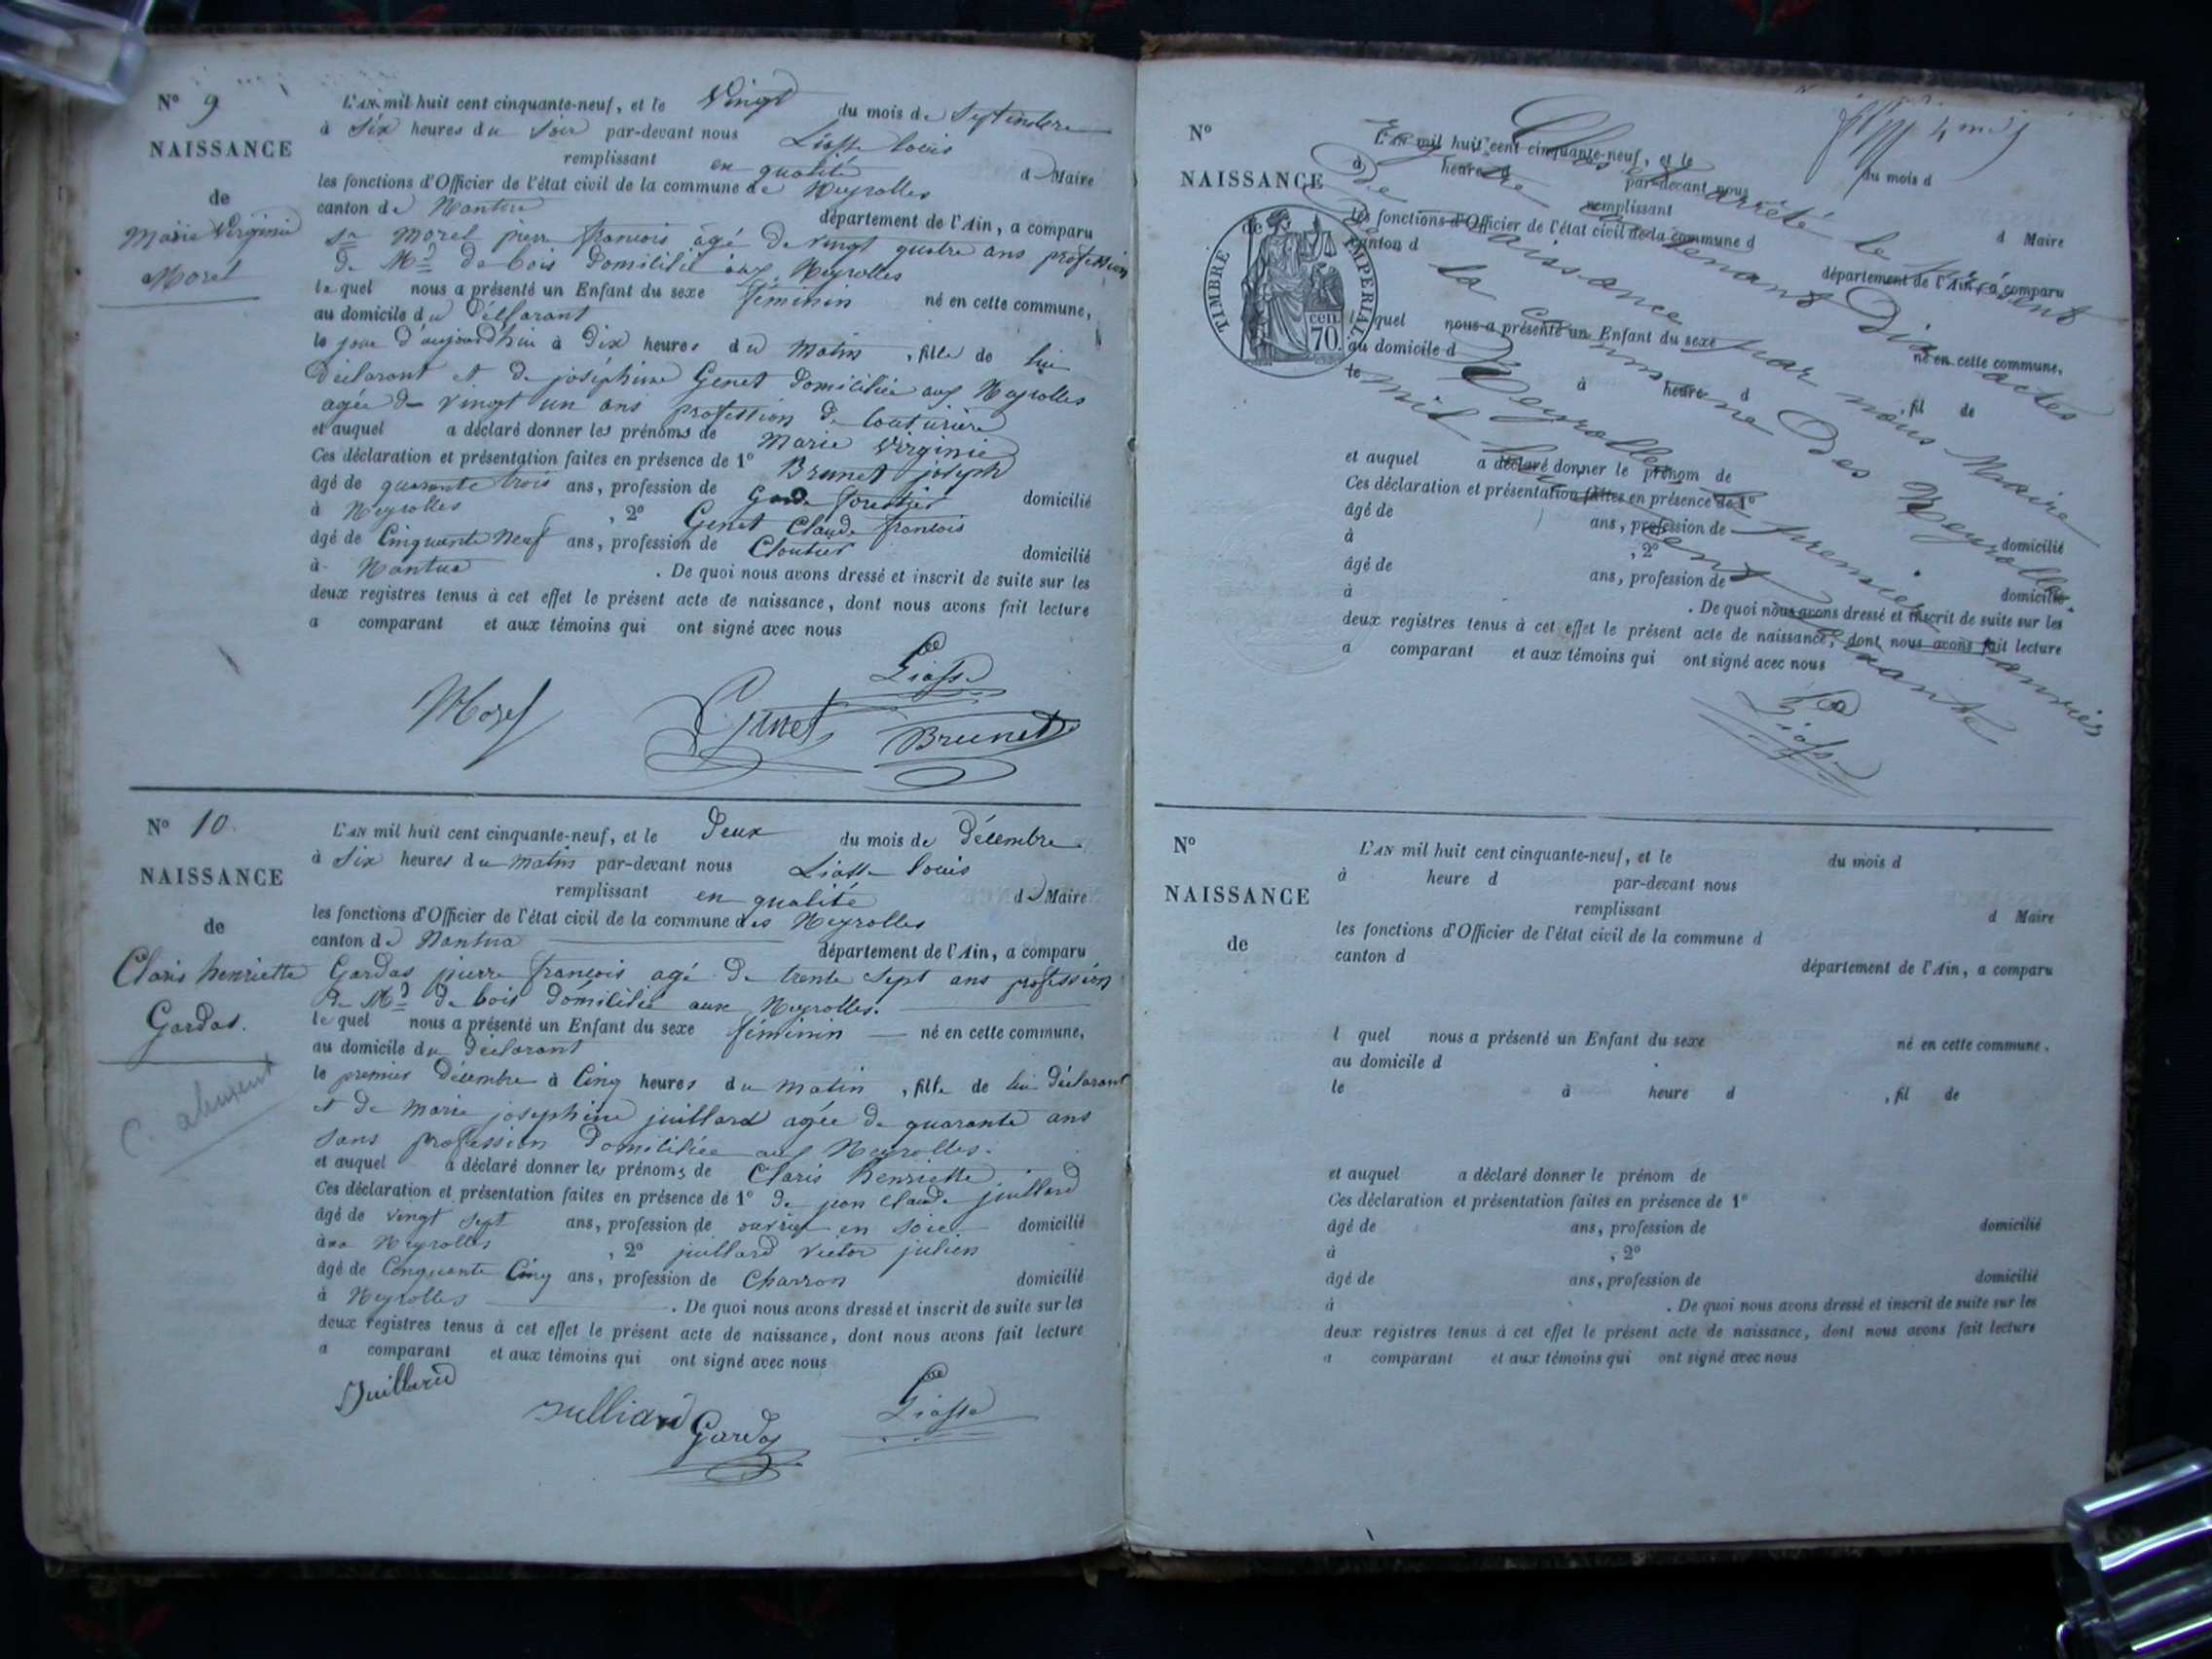 N° 9
NAISSANCE
de
Marie Virginie
Morel
L'AN mil huit cent cinquante-neuf, et le Vingt du mois de Septembre
à Six heures du Soir par-devant nous Liasse louis
remplissant en qualité de Maire
les fonctions d'Officier de l'état civil de la commune de Neyrolles
canton de Nantua département de l'Ain, a comparu
Sr Morel pierre francois agé de vingt quatre ans profession
de Md de bois domicilié aux Neyrolles
lequel nous a présenté un Enfant du sexe féminin né en cette commune,
au domicile du déclarant
le jour d'aujourd'hui à Dix heures du Matin, fille de lui
déclarant et de joséphine Genet domiciliée aux Neyrolles
agée de vingt un ans profession de couturière
et auquel a déclaré donner les prénoms de Marie Virginie
Ces déclaration et présentation faites en présence de 1° Brunet joseph
âgé de quarante trois ans, profession de Garde forestier domicilié
à Neyrolles, 2° Genet Claude francois
âgé de Cinquante Neuf ans, profession de Cloutier domicilié
à Nantua. De quoi nous avons dressé et inscrit de suite sur les
deux registres tenus à cet effet le présent acte de naissance, dont nous avons fait lecture
a comparant et aux témoins qui ont signé avec nous
Liasse
Morel Genet Brunet
N° 10.
NAISSANCE
de
Claris henriette
Gardas.
L'AN mil huit cent cinquante-neuf, et le deux du mois de décembre
à Six heures du matin par-devant nous Liasse louis
remplissant en qualité de Maire
les fonctions d'Officier de l'état civil de la commune des Neyrolles
canton de Nantua département de l'Ain, a comparu
Gardas pierre françois agé de trente sept ans profession
de Md de bois domicilié aux Neyrolles.
lequel nous a présenté un Enfant du sexe féminin né en cette commune,
au domicile du déclarant
le premier décembre à Cinq heures du matin, fille de lui déclarant
et de marie josephine juillard agée de quarante ans
sans profession domiciliée aux Neyrolles.
et auquel a déclaré donner les prénoms de Claris henriette
Ces déclaration et présentation faites en présence de 1° de jean claude juillard
âgé de vingt sept ans, profession de ouvrier en soie domicilié
aux Neyrolles, 2° juillard victor julien
âgé de Cenquante Cinq ans, profession de Charron domicilié
à Neyrolles. De quoi nous avons dressé et inscrit de suite sur les
deux registres tenus à cet effet le présent acte de naissance, dont nous avons fait lecture
a comparant et aux témoins qui ont signé avec nous
Juillard Julliard Gardas Liasse
N°
NAISSANCE
de
TIMBRE IMPERIAL
70 cen.
L'AN mil huit cent cinquante-neuf, et le du mois d
à heure d par-devant nous
remplissant d Maire
les fonctions d'Officier de l'état civil de la commune d
canton d département de l'Ain, a comparu
l quel nous a présenté un Enfant du sexe né en cette commune,
au domicile d
le à heure d, fil de
et auquel a déclaré donner le prénom de
Ces déclaration et présentation faites en présence de 1°
âgé de ans, profession de domicilié
à, 2°
âgé de ans, profession de domicilié
à. De quoi nous avons dressé et inscrit de suite sur les
deux registres tenus à cet effet le présent acte de naissance, dont nous avons fait lecture
a comparant et aux témoins qui ont signé avec nous
Clos et arrêté le présent
Registre contenant Dix actes
de naissance par nous Maire
de la Commune des Neyrolles.
Neyrolles le premier janvier
mil huit cent soixante
Liasse
N°
NAISSANCE
de
L'AN mil huit cent cinquante-neuf, et le du mois d
à heure d par-devant nous
remplissant d Maire
les fonctions d'Officier de l'état civil de la commune d
canton d département de l'Ain, a comparu
l quel nous a présenté un Enfant du sexe né en cette commune.
au domicile d
le à heure d, fil de
et auquel a déclaré donner le prénom de
Ces déclaration et présentation faites en présence de 1°
âgé de ans, profession de domicilié
à, 2°
âgé de ans, profession de domicilié
à. De quoi nous avons dressé et inscrit de suite sur les
deux registres tenus à cet effet le présent acte de naissance, dont nous avons fait lecture
a comparant et aux témoins qui ont signé avec nous